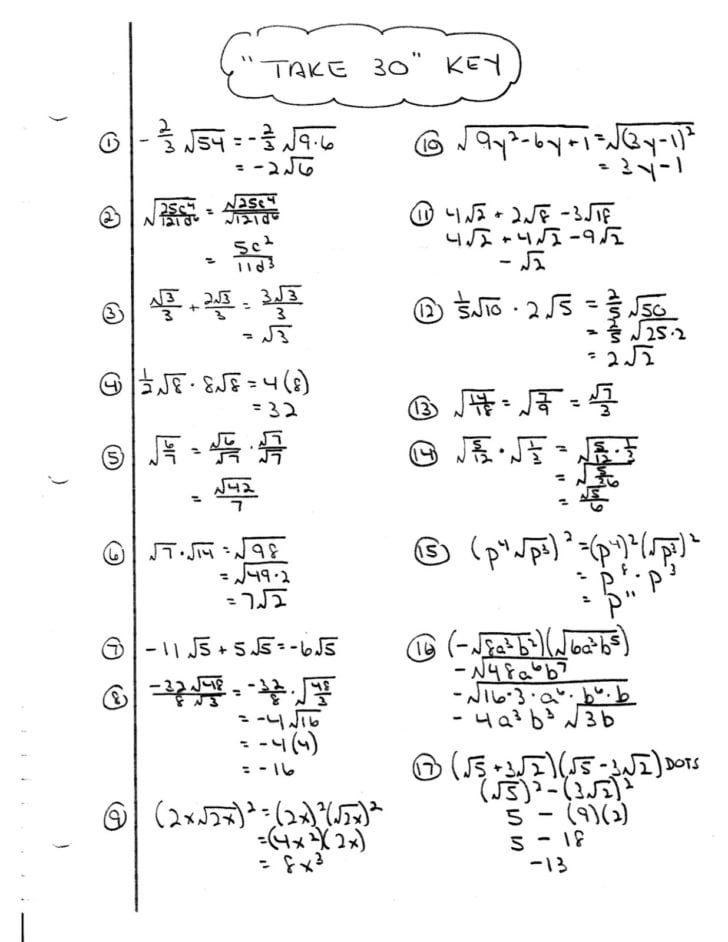 "TAKE 30" KEY
① -2/3 √54 = -2/3 √(9·6)
= -2√6
② √(25c⁴/121d⁶) = √(25c⁴)/√(121d⁶)
= 5c²/11d³
③ √3/3 + 2√3/3 = 3√3/3
= √3
④ 1/2 √8 · 8√8 = 4(8)
= 32
⑤ √(6/7) = √6/√7 · √7/√7
= √42/7
⑥ √7 · √14 = √98
= √(49·2)
= 7√2
⑦ -11√5 + 5√5 = -6√5
⑧ -32√48/8√3 = -32/8 · √(48/3)
= -4√16
= -4(4)
= -16
⑨ (2x√2x)² = (2x)²(√2x)²
= (4x²)(2x)
= 8x³
⑩ √(9y²-6y+1) = √(3y-1)²
= 3y-1
⑪ 4√2 + 2√8 - 3√18
4√2 + 4√2 - 9√2
-√2
⑫ 1/5 √10 · 2√5 = 2/5 √50
= 2/5 √(25·2)
= 2√2
⑬ √(14/18) = √(7/9) = √7/3
⑭ √(5/12) · √(1/3) = √(5/12 · 1/3)
= √(5/36)
= √5/6
⑮ (p⁴√p³)² = (p⁴)²(√p³)²
= p⁸ · p³
= p¹¹
⑯ (-√(8a³b²))(√(6a³b⁵))
-√(48a⁶b⁷)
-√(16·3·a⁶·b⁶·b)
-4a³b³√3b
⑰ (√5 + 3√2)(√5 - 3√2) DOTS
(√5)² - (3√2)²
5 - (9)(2)
5 - 18
-13